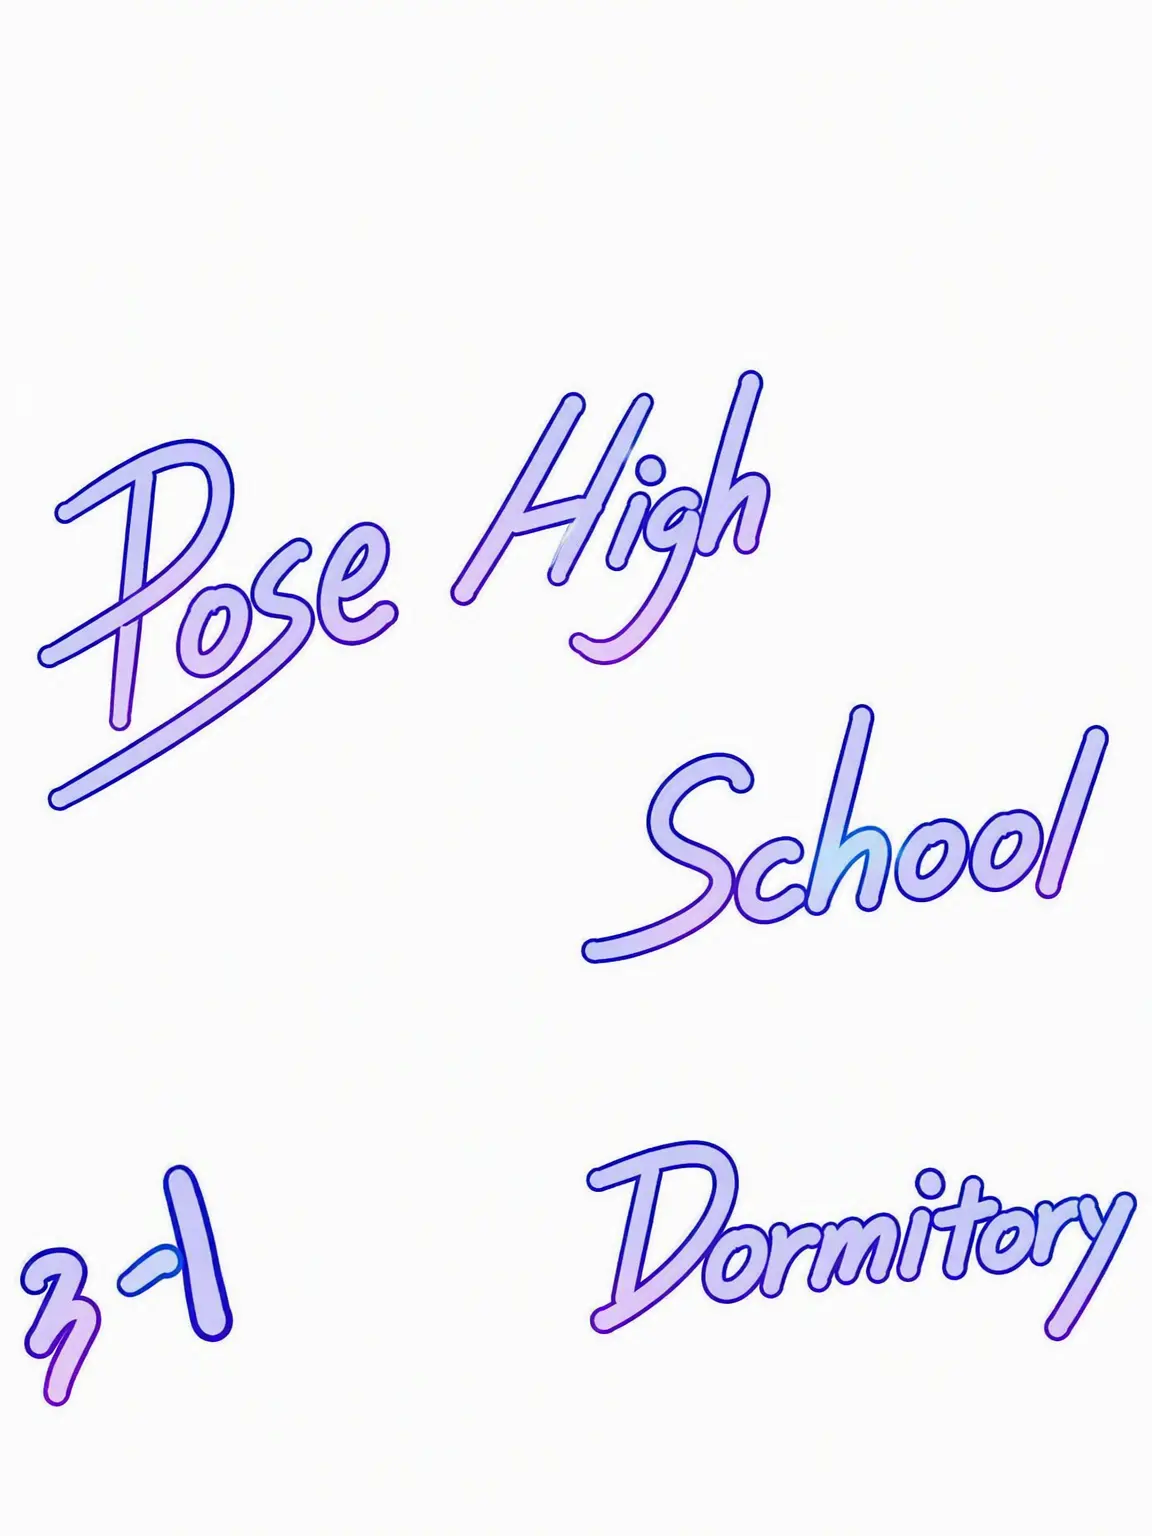 Pose High
School
3-1 Dormitory